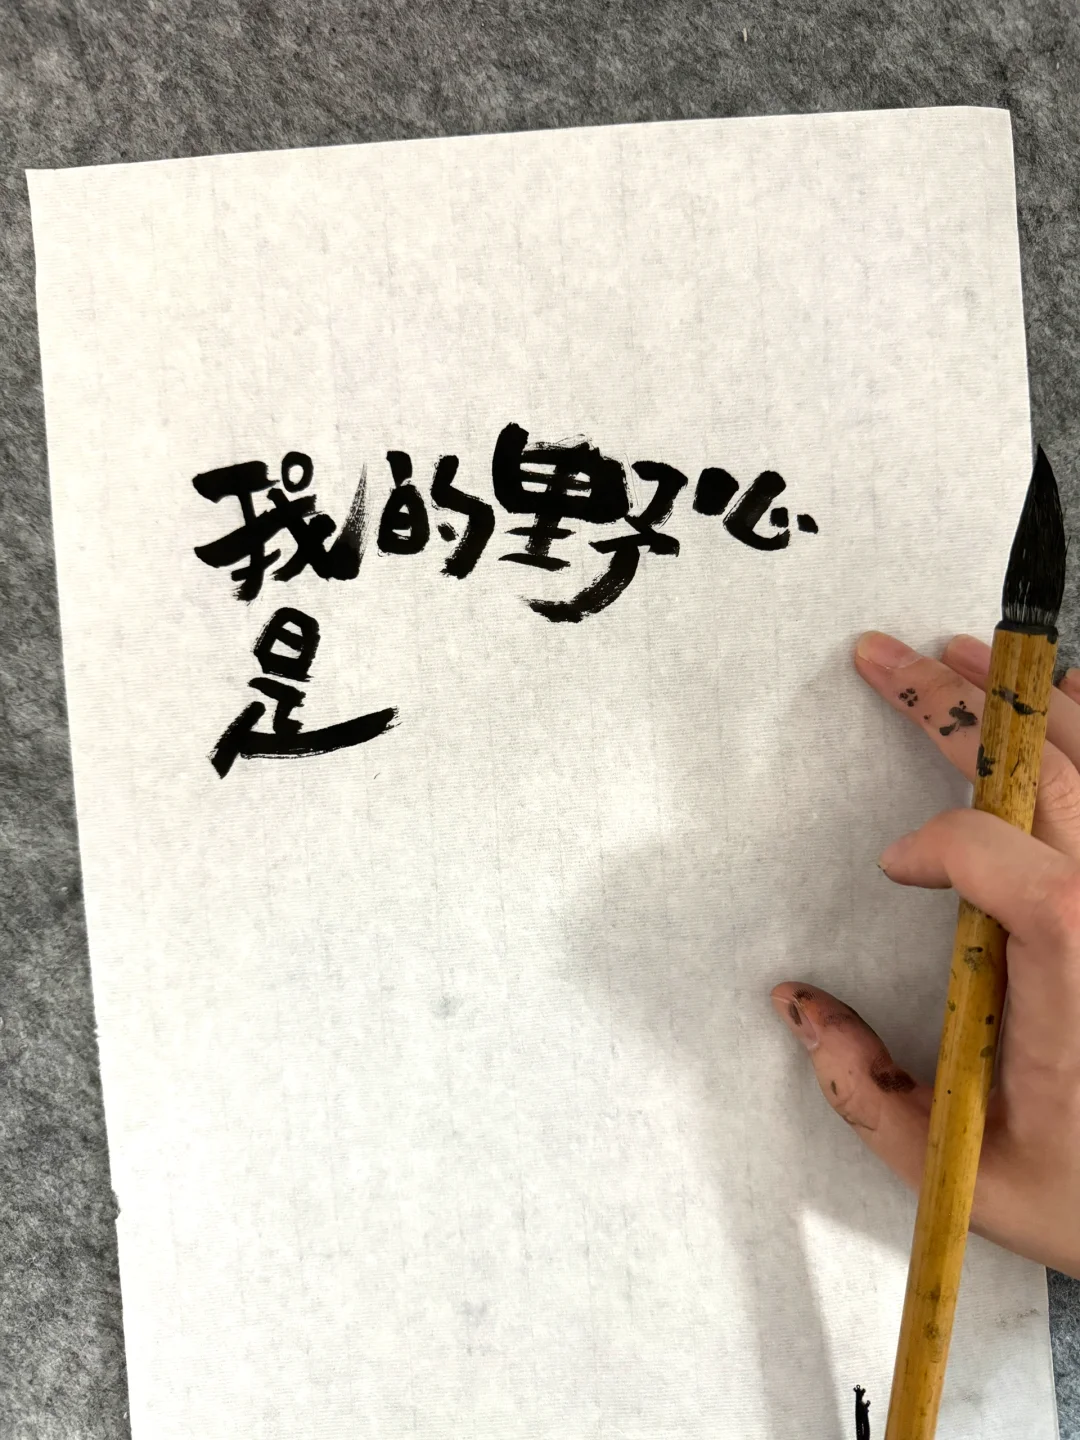 我的野心
是